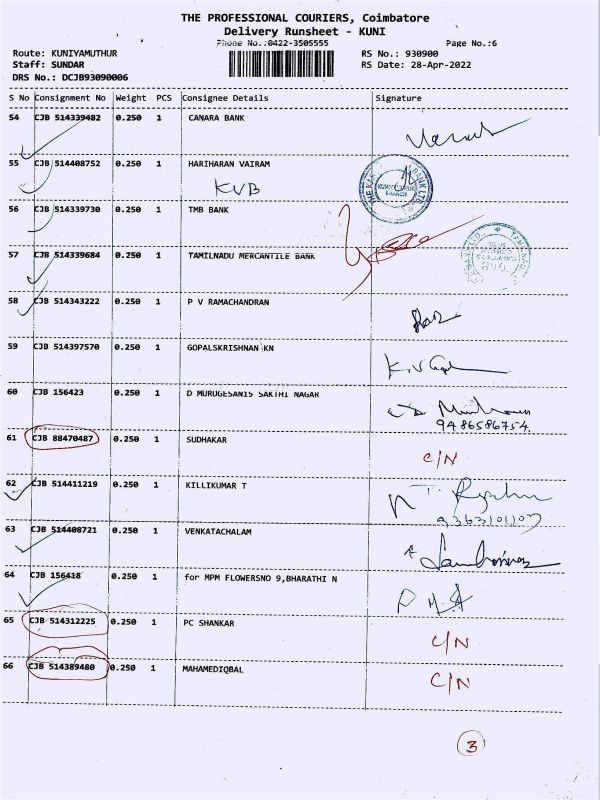 THE PROFESSIONAL COURIERS, Coimbatore
Delivery Runsheet - KUNI
Phone No.:0422-3505555 Page No.:6
Route: KUNIYAMUTHUR RS No.: 930900
Staff: SUNDAR RS Date: 28-Apr-2022
DRS No.: DCJB93090006
S No Consignment No Weight PCS Consignee Details Signature
54 CJB 514339482 0.250 1 CANARA BANK
55 CJB 514408752 0.250 1 HARIHARAN VAIRAM
KVB
56 CJB 514339730 0.250 1 TMB BANK
57 CJB 514339684 0.250 1 TAMILNADU MERCANTILE BANK
58 CJB 514343222 0.250 1 P V RAMACHANDRAN
59 CJB 514397570 0.250 1 GOPALSKRISHNAN KN
60 CJB 156423 0.250 1 D MURUGESAN15 SAKTHI NAGAR
9486586754
61 CJB 88470487 0.250 1 SUDHAKAR C/N
62 CJB 514411219 0.250 1 KILLIKUMAR T
63 CJB 514408721 0.250 1 VENKATACHALAM
64 CJB 156418 0.250 1 for MPM FLOWERSNO 9,BHARATHI N
65 CJB 514312225 0.250 1 PC SHANKAR C/N
66 CJB 514389480 0.250 1 MAHAMEDIQBAL C/N
3